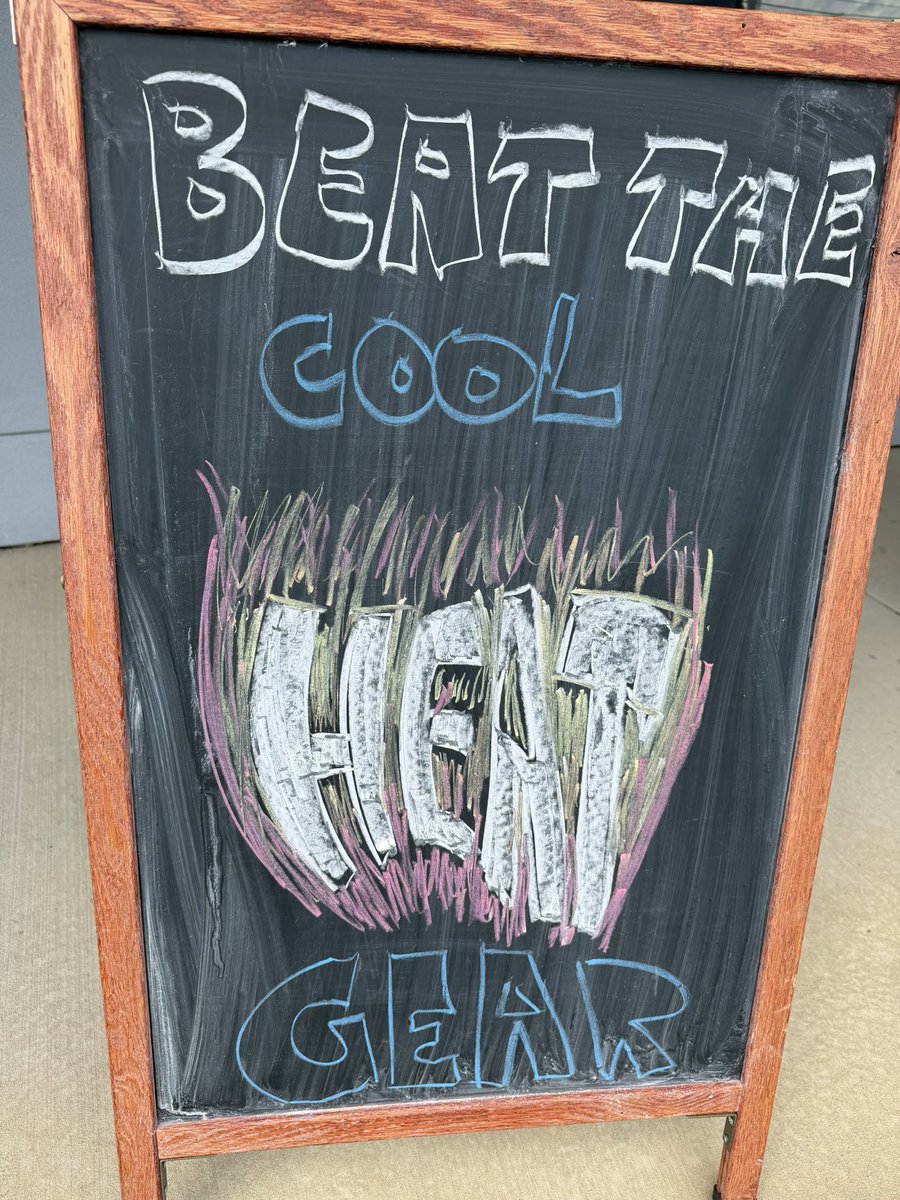 BEAT THE
COOL
HEAT
GEAR